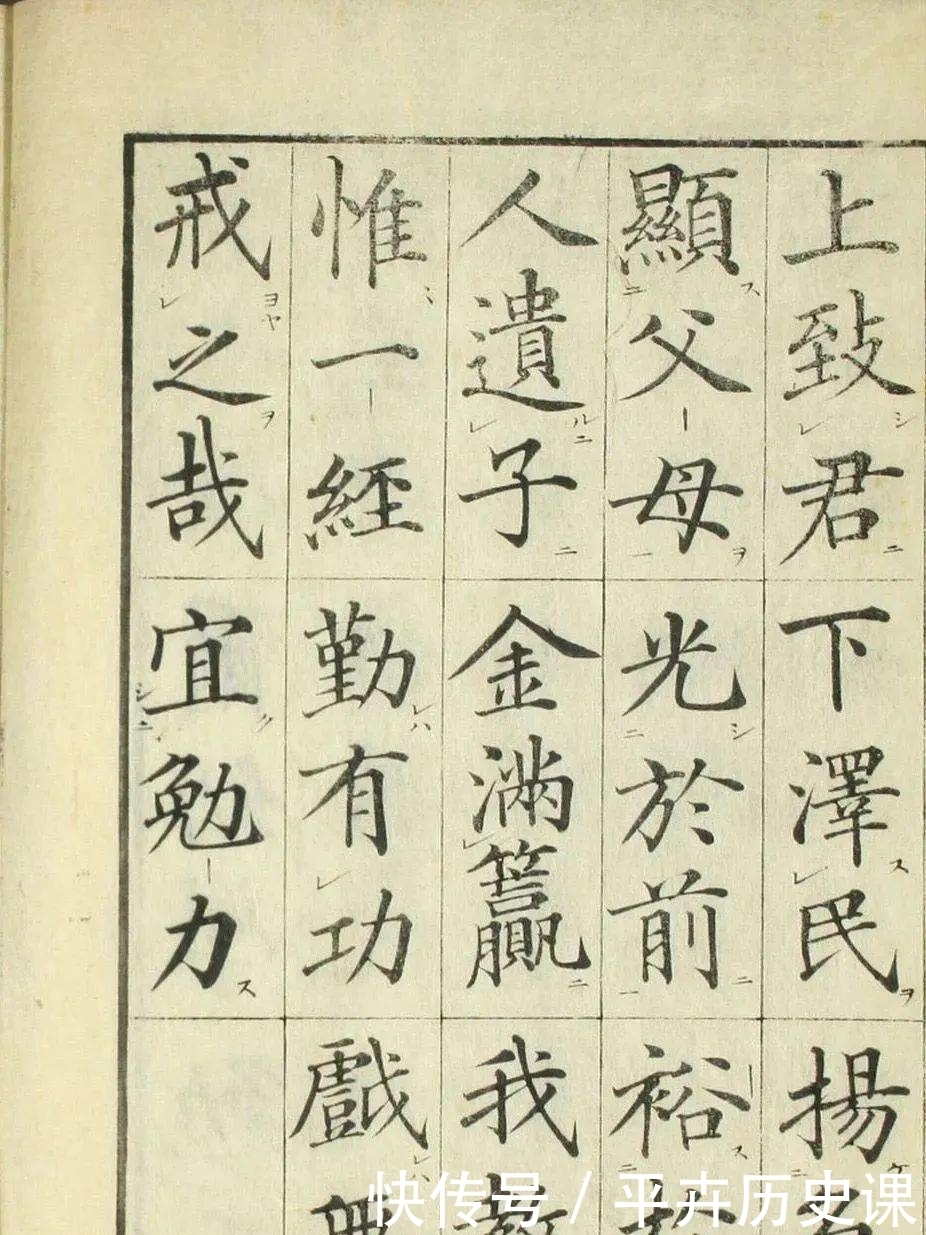 上致君下澤民揚名
顯父母光於前裕於
人遺子金滿籯我教
惟一經勤有功戲無
戒之哉宜勉力
快传号 / 平卉历史课